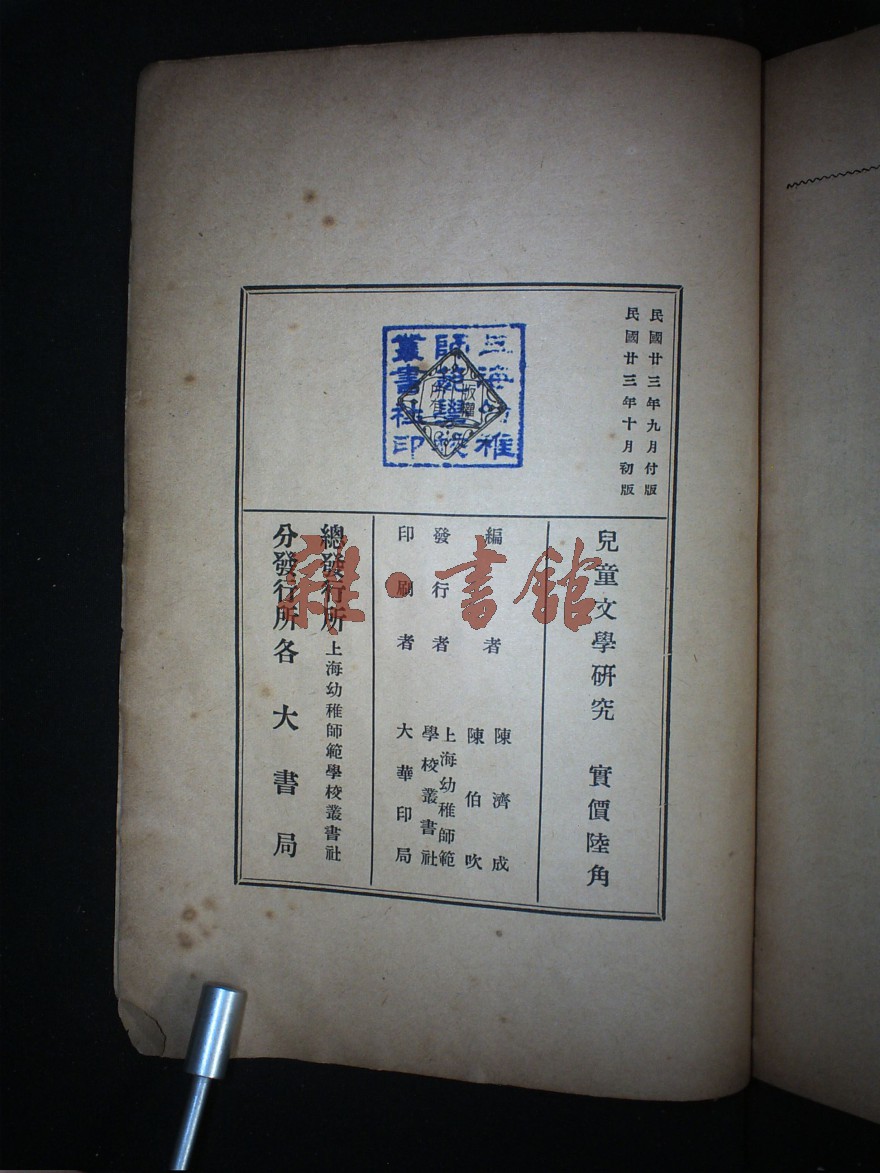 民國廿三年九月付版
民國廿三年十月初版
上海幼稚
師範學校
叢書社印
版權
所有
兒童文學研究 實價陸角
編者 陳濟成
陳伯吹
發行者 上海幼稚師範
學校叢書社
印刷者 大華印局
總發行所 上海幼稚師範學校叢書社
分發行所 各大書局
雜·書館